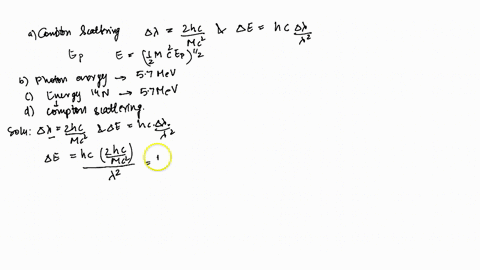 a) Compton Scattering Δλ = 2hc/Mc² & ΔE = hc Δλ/λ²
Ep E = (1/2 M c² Ep)^1/2
b) Photon energy → 5.7 MeV
c) Energy ¹⁴N → 5.7 MeV
d) Compton scattering.
Soln: Δλ = 2hc/Mc² & ΔE = hc·Δλ/λ²
ΔE = hc (2hc/Mc²)/λ² =